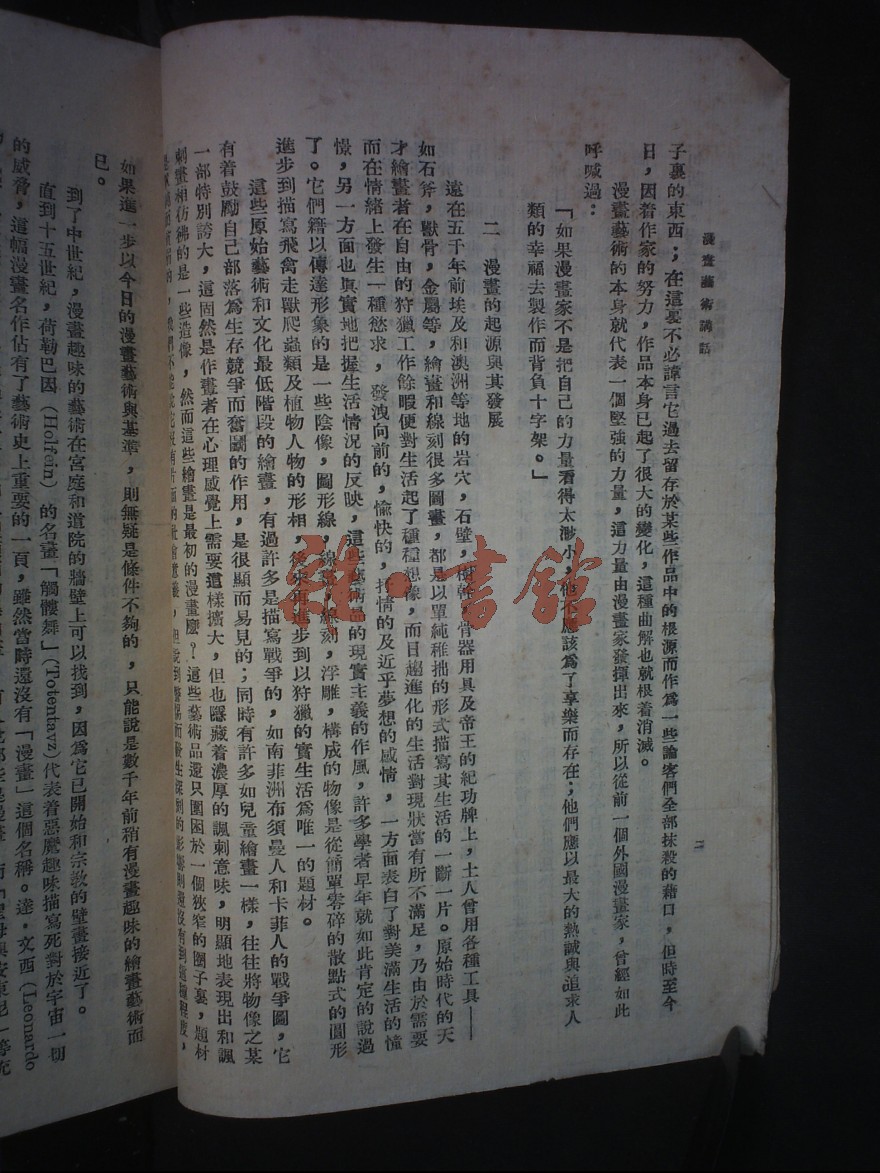 漫畫藝術講話
二
子裏的東西;在這裏不必諱言它過去留存於某些作品中的根源而作爲一些論客們全部抹殺的藉口,但時至今
日,因着作家的努力,作品本身已起了很大的變化,這種曲解也就根着消滅。
漫畫藝術的本身就代表一個堅強的力量,這力量由漫畫家發揮出來,所以從前一個外國漫畫家,曾經如此
呼喊過:
「如果漫畫家不是把自己的力量看得太渺小,他不應該爲了享樂而存在;他們應以最大的熱誠與追求人
類的幸福去製作而背負十字架。」
二 漫畫的起源與其發展
遠在五千年前埃及和澳洲等地的岩穴,石壁,樹幹,骨器用具及帝王的紀功牌上,土人曾用各種工具——
如石斧,獸骨,金屬等,繪畫和線刻很多圖畫,都是以單純稚拙的形式描寫其生活的一斷一片。原始時代的天
才繪畫者在自由的狩獵工作餘暇便對生活起了種種想像,而日趨進化的生活對現狀當有所不滿足,乃由於需要
而在情緒上發生一種慾求,發洩向前的,愉快的,抒情的及近乎夢想的感情,一方面表白了對美滿生活的憧
憬,另一方面也真實地把握生活情況的反映,這些藝術品的現實主義的作風,許多學者早年就如此肯定的說過
了。它們籍以傳達形象的是一些陰像,圖形線,線畫,線刻,浮雕,構成的物像是從簡單零碎的散點式的圓形
進步到描寫飛禽走獸爬蟲類及植物人物的形相,後來再進步到以狩獵的實生活爲唯一的題材。
這些原始藝術和文化最低階段的繪畫,有過許多是描寫戰爭的,如南菲洲布須曼人和卡菲人的戰爭圖,它
有着鼓勵自己部落爲生存競爭而奮鬭的作用,是很顯而易見的;同時有許多如兒童繪畫一樣,往往將物像之某
一部特別誇大,這固然是作畫者在心理感覺上需要這樣擴大,但也隱藏着濃厚的諷刺意味,明顯地表現出和諷
刺畫相仿彿的是一些造像,然而這些繪畫是最初的漫畫麼?這些藝術品還只圍困於一個狹窄的圈子裏,題材
如果進一步以今日的漫畫藝術與基準,則無疑是條件不夠的,只能說是數千年前稍有漫畫趣味的繪畫藝術而
已。
到了中世紀,漫畫趣味的藝術在宮庭和道院的牆壁上可以找到,因爲它已開始和宗敎的壁畫接近了。
直到十五世紀,荷勒巴因(Holfein)的名畫「髑髏舞」(Totentavz)代表着惡魔趣味描寫死對於宇宙一切
的威脅,這幅漫畫名作佔有了藝術史上重要的一頁,雖然當時還沒有「漫畫」這個名稱。達,文西(Leonardo
雜·書館